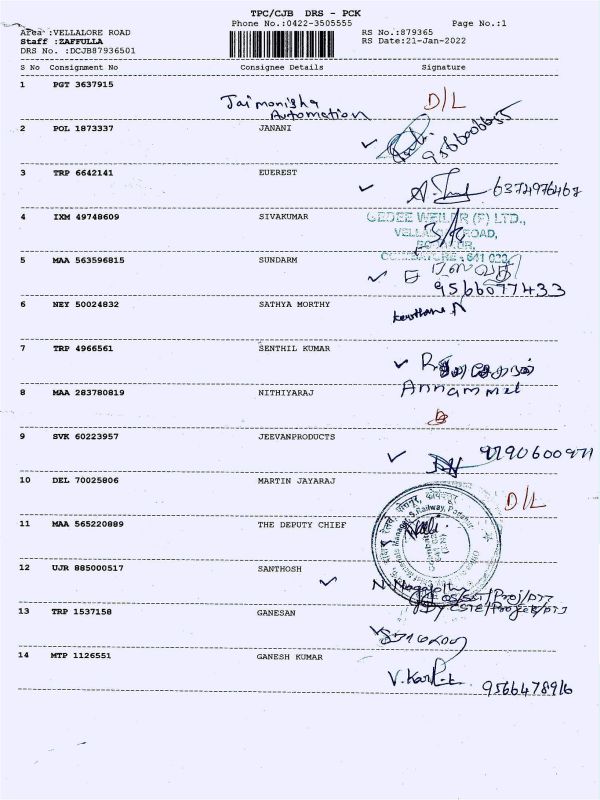 TPC/CJB DRS - PCK
Phone No.:0422-3505555 Page No.:1
Area :VELLALORE ROAD RS No.:879365
Staff :ZAFFULLA RS Date:21-Jan-2022
DRS No. :DCJB87936501
S No Consignment No Consignee Details Signature
1 PGT 3637915
Jaimonisha Automation D/L
2 POL 1873337 JANANI
9566006655
3 TRP 6642141 EUEREST
6374976467
4 IXM 49748609 SIVAKUMAR GEDEE WEILER (P) LTD.,
5 MAA 563596815 SUNDARM
9566077433
6 NEY 50024832 SATHYA MORTHY
7 TRP 4966561 SENTHIL KUMAR
8 MAA 283780819 NITHIYARAJ Annammal
9 SVK 60223957 JEEVANPRODUCTS
9790600971
10 DEL 70025806 MARTIN JAYARAJ D/L
11 MAA 565220889 THE DEPUTY CHIEF
12 UJR 885000517 SANTHOSH
13 TRP 1537158 GANESAN
14 MTP 1126551 GANESH KUMAR
9566478916